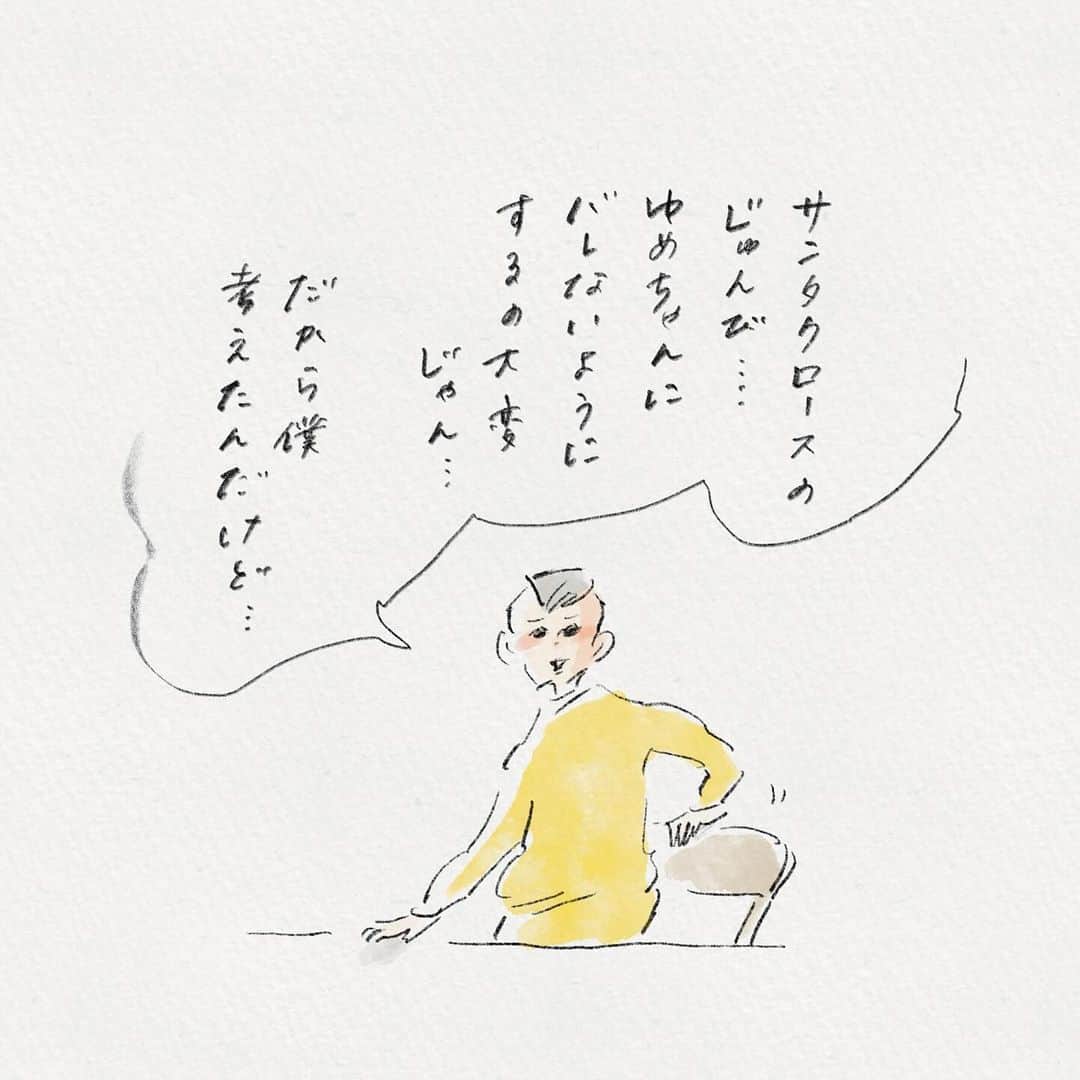 サンタクロースの
じゅんび‥‥
ゆめちゃんに
バレないように
するの大変
じゃん…
だから僕
考えたんだけど…